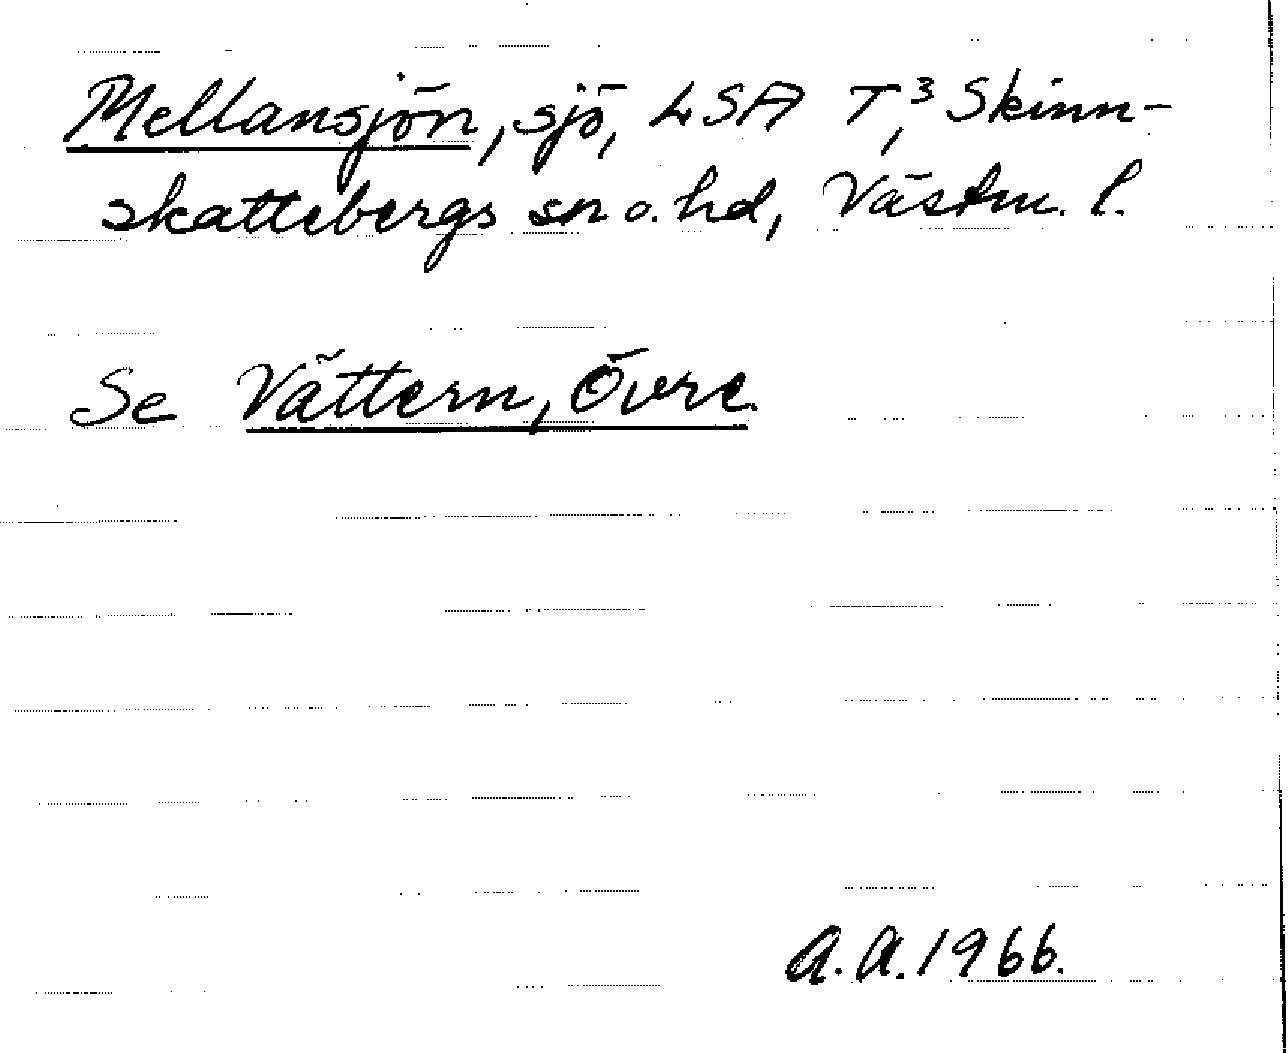 Mellansjön, sjö, LSA T,³ Skinn-
skattebergs sn o. hd, Västm. l.
Se Vättern, Övre.
A.A. 1966.